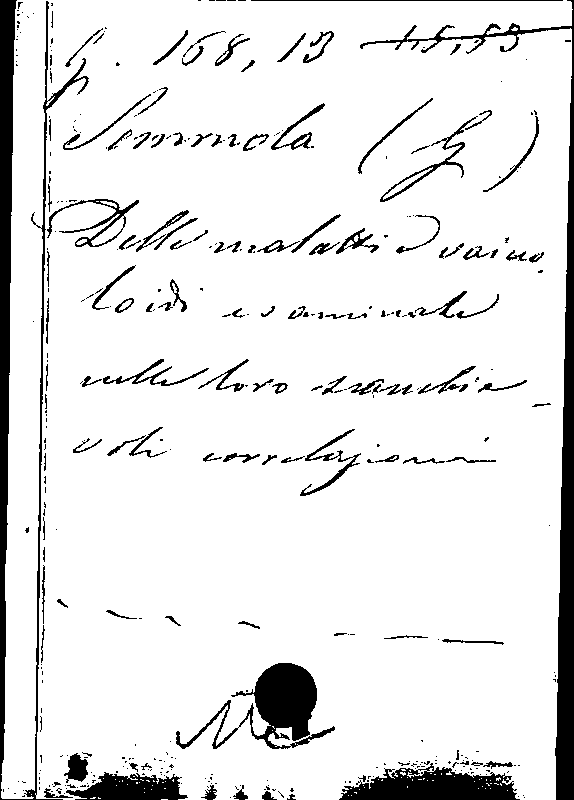 G. 168, 13 15,53
Semmola (G)
Delle malattie vaiuo
loidi esaminate
nelle loro scambie-
voli correlazioni